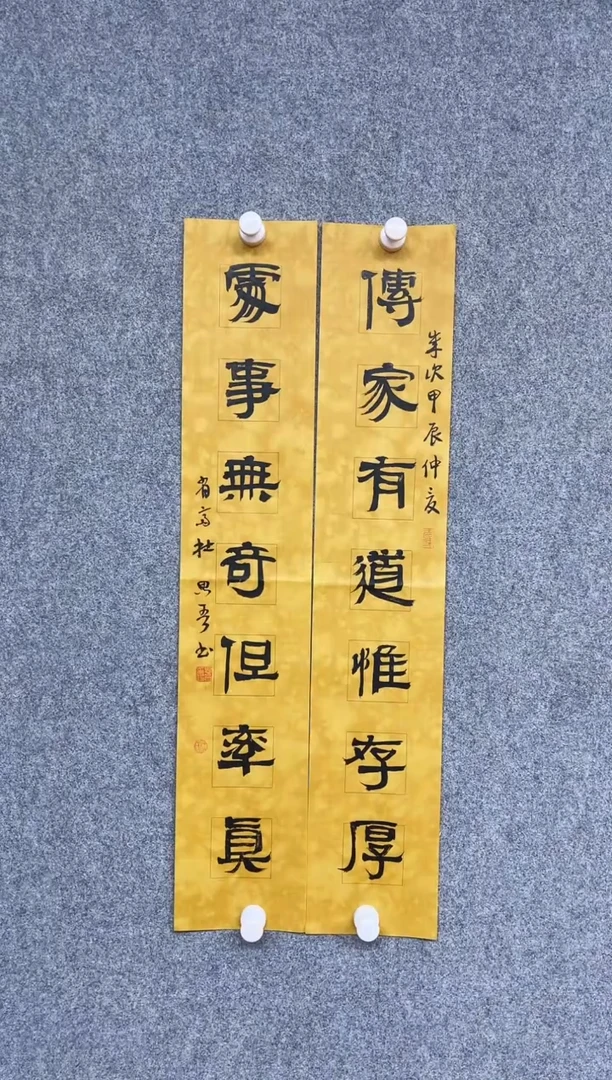 傳家有道惟存厚
歲次甲辰仲夏
處事無奇但率真
杜思
书